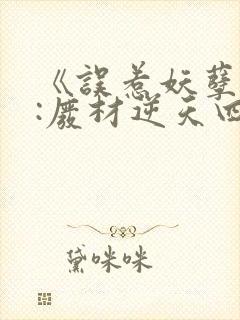 《誤惹妖孽
:廢材逆天四
黛咪咪